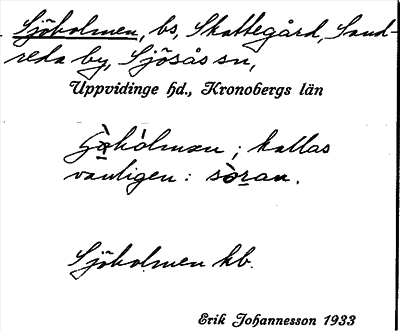 Sjöholmen, bs, Skattegård, Sand-
reda by, Sjösås sn,
Uppvidinge hd., Kronobergs län
kallas
vanligen: sòran.
Sjöholmen kb.
Erik Johannesson 1933